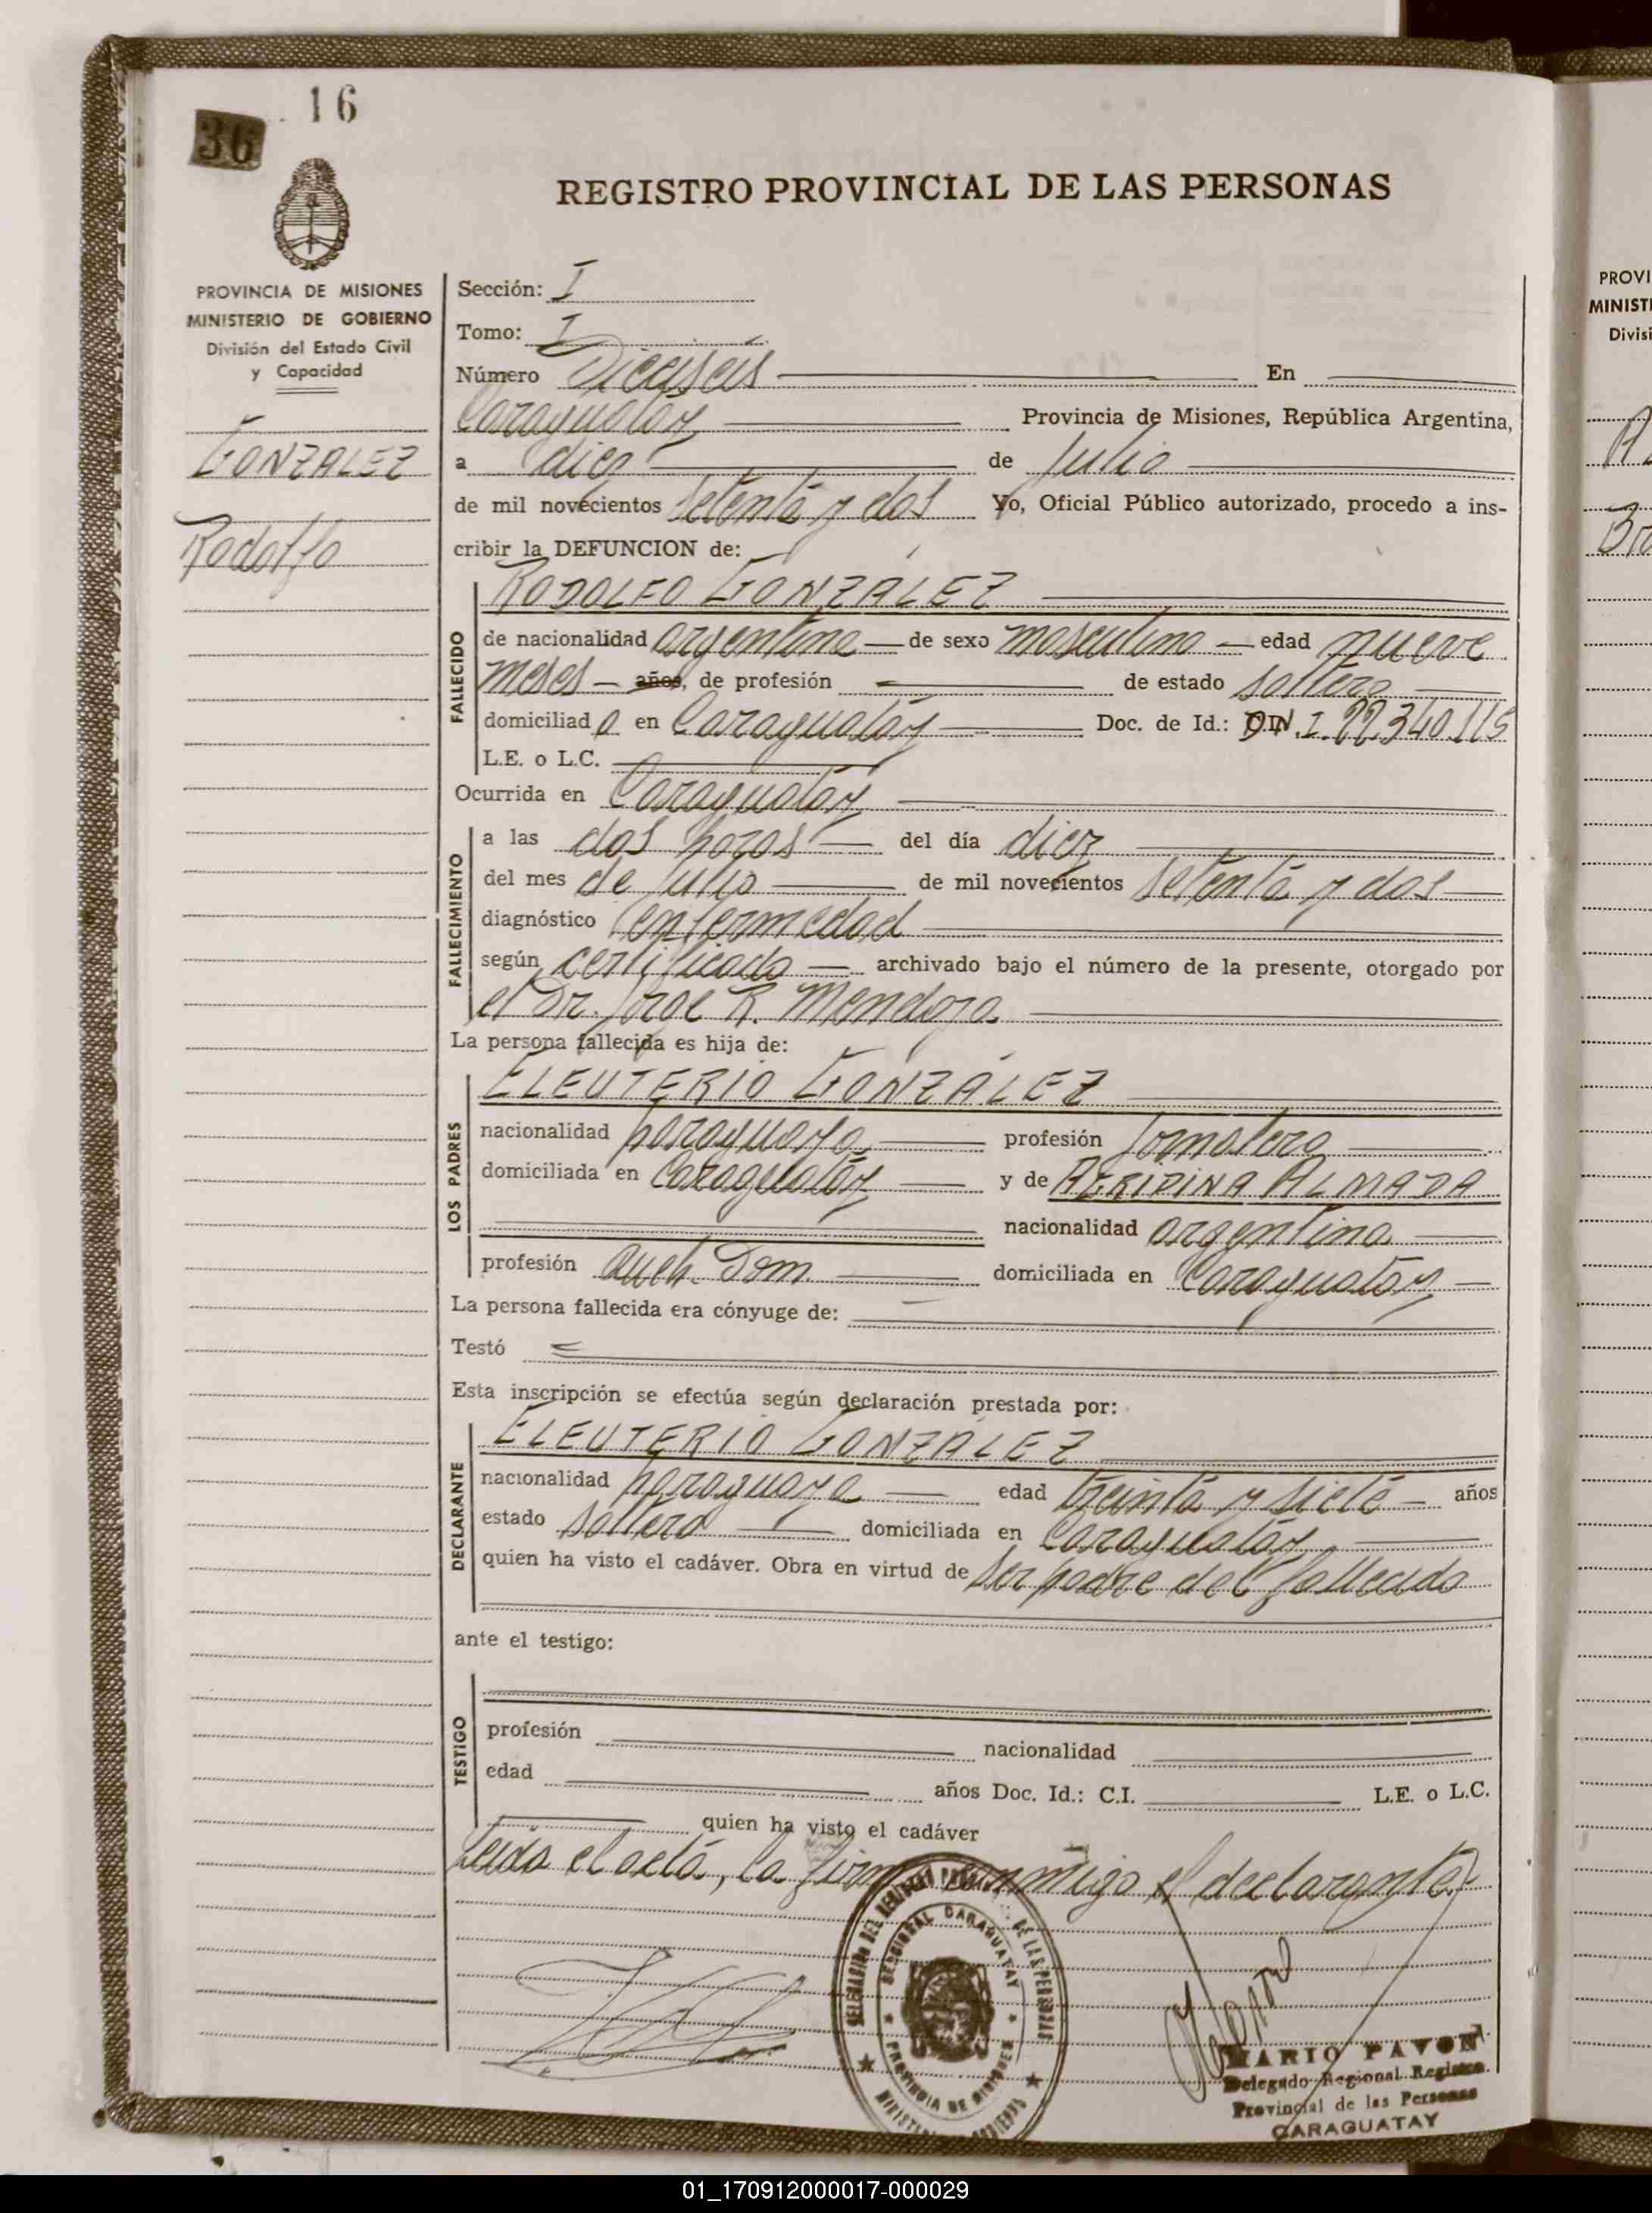 16
36
REGISTRO PROVINCIAL DE LAS PERSONAS
PROVINCIA DE MISIONES
MINISTERIO DE GOBIERNO
División del Estado Civil
y Capacidad
GONZALEZ
Rodolfo
Sección: I
Tomo: I
Número Dieciséis En
Caraguatáy Provincia de Misiones, República Argentina,
a diez de Julio
de mil novecientos setenta y dos Yo, Oficial Público autorizado, procedo a ins-
cribir la DEFUNCION de:
FALLECIDO
RODOLFO GONZÁLEZ
de nacionalidad argentina de sexo masculino edad nueve
meses años, de profesión de estado soltero
domiciliad o en Caraguatáy Doc. de Id.: D.N.I. 22.340.115
L.E. o L.C.
Ocurrida en Caraguatáy
FALLECIMIENTO
a las dos horas del día diez
del mes de Julio de mil novecientos setenta y dos
diagnóstico enfermedad
según certificado archivado bajo el número de la presente, otorgado por
el Dr. Jorge R. Mendoza
La persona fallecida es hija de:
LOS PADRES
ELEUTERIO GONZÁLEZ
nacionalidad paraguaya profesión Jornalero
domiciliada en Caraguatáy y de ALMADA
nacionalidad argentina
profesión Dom. domiciliada en Caraguatáy
La persona fallecida era cónyuge de:
Testó
Esta inscripción se efectúa según declaración prestada por:
DECLARANTE
ELEUTERIO GONZALEZ
nacionalidad paraguaya edad treinta y siete años
estado soltero domiciliada en Caraguatáy
quien ha visto el cadáver. Obra en virtud de ser padre del fallecido
ante el testigo:
TESTIGO
profesión nacionalidad
edad años Doc. Id.: C.I. L.E. o L.C.
quien ha visto el cadáver
Leída el acta, la firma conmigo el declarante
DELEGACION DEL REGISTRO DE LAS PERSONAS
SECCIONAL CARAGUATAY
PROVINCIA DE MISIONES
MARIO PAVON
Delegado Regional Registro
Provincial de las Personas
CARAGUATAY
PROVI
MINISTE
Divisi
01_170912000017-000029